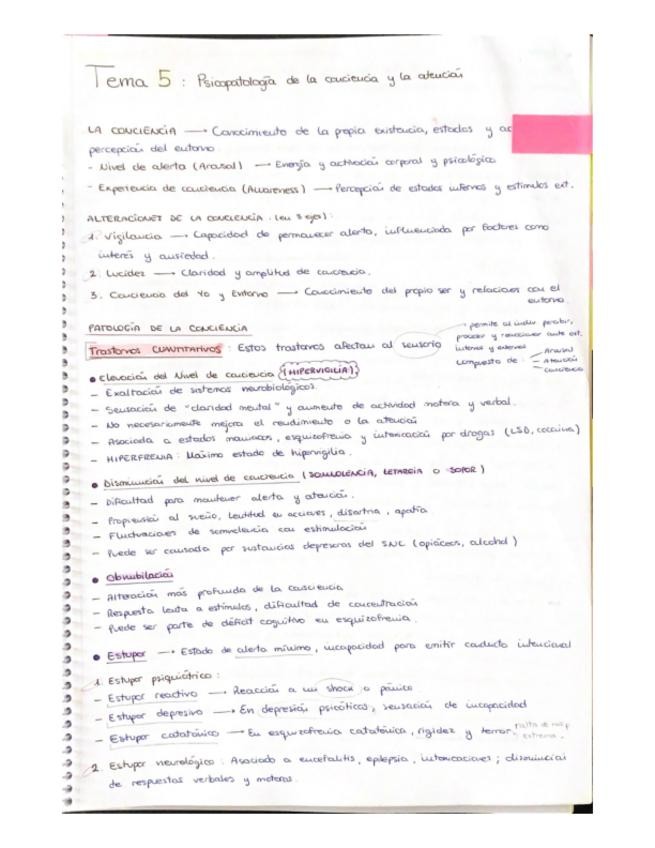 Tema 5 : Psicopatología de la conciencia y la atención
LA CONCIENCIA → Conocimiento de la propia existencia, estados y ac
percepción del entorno
- Nivel de alerta (Arousal) → Energía y activación corporal y psicológica
- Experiencia de conciencia (Awareness) → Percepción de estados internos y estímulos ext.
ALTERACIONES DE LA CONCIENCIA : (en 3 ejes) :
1. Vigilancia → Capacidad de permanecer alerta, influenciada por factores como
interés y ansiedad.
2. Lucidez → Claridad y amplitud de conciencia.
3. Conciencia del Yo y Entorno → Conocimiento del propio ser y relaciones con el
entorno.
PATOLOGÍA DE LA CONCIENCIA
Trastornos CUANTITATIVOS : Estos trastornos afectan al sensorio
→ permite al indiv. percibir,
procesar y reaccionar ante est.
internos y externos
compuesto de : Arousal
Atención
Conciencia
• Elevación del Nivel de conciencia (HIPERVIGILIA)
- Exaltación de sistemas neurobiológicos.
- Sensación de "claridad mental" y aumento de actividad motora y verbal.
- No necesariamente mejora el rendimiento o la atención
- Asociada a estados maníacos, esquizofrenia y intoxicación por drogas (LSD, cocaína)
- HIPERFRENIA : Máximo estado de hipervigilia.
• Disminución del nivel de conciencia (SOMNOLENCIA, LETARGIA o SOPOR)
- Dificultad para mantener alerta y atención.
- Propensión al sueño, lentitud en acciones, disartria, apatía
- Fluctuaciones de somnolencia con estimulación
- Puede ser causada por sustancias depresoras del SNC (opiáceos, alcohol)
• Obnubilación
- Alteración más profunda de la consciencia
- Respuesta lenta a estímulos, dificultad de concentración
- Puede ser parte de déficit cognitivo en esquizofrenia.
• Estupor → Estado de alerta mínimo, incapacidad para emitir conducta intencional
1. Estupor psiquiátrico :
- Estupor reactivo → Reacción a un shock o pánico
- Estupor depresivo → En depresión psicóticas, sensación de incapacidad
- Estupor catatónico → En esquizofrenia catatónica, rigidez y terror. falta de resp. extrema.
2. Estupor neurológico : Asociado a encefalitis, epilepsia, intoxicaciones ; disminución
de respuestas verbales y motoras.